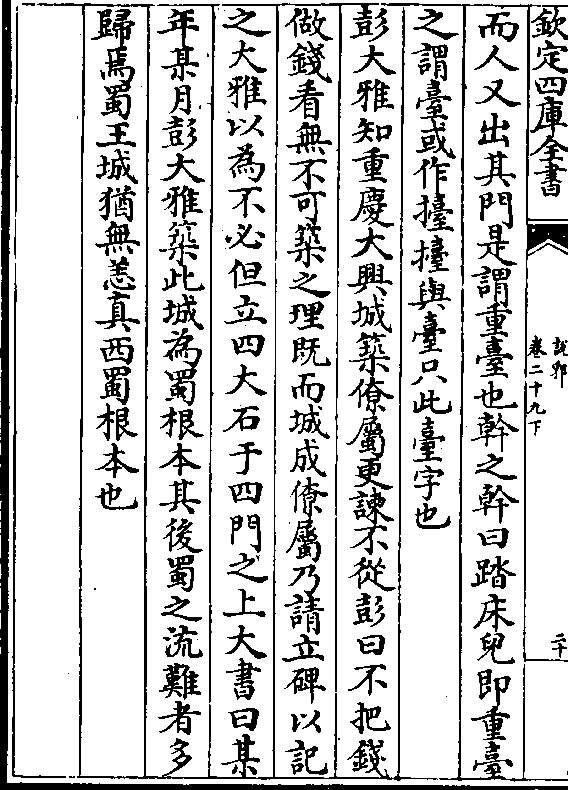 欽定四庫全書
說郛
卷二十九下
二十
而人又出其門是謂重臺也幹之幹曰踏床兒即重臺
之謂臺或作擡擡與臺只此臺字也
彭大雅知重慶大興城築僚屬更諫不從彭曰不把錢
做錢看無不可築之理既而城成僚屬乃請立碑以記
之大雅以為不必但立四大石于四門之上大書曰某
年某月彭大雅築此城為蜀根本其後蜀之流難者多
歸焉蜀王城猶無恙真西蜀根本也